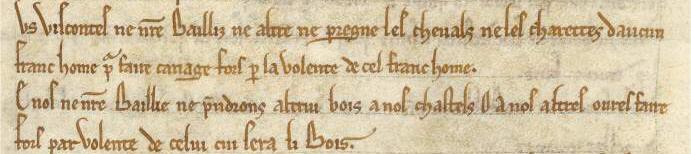 Us viscontes ne nr̃e Bailliz ne altre ne pregne les chevals ne les charettes daucun
franc home pͣ faire cariage fors ꝑ la volente de cel franc home.
E nos ne nr̃e Baillie ne p̃ndrons altrui bois a nos chastels O a nos altres ovres faire
fors par volente de celui cui sera li Bois.